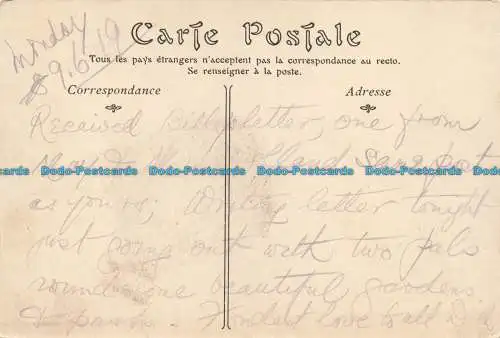 Monday
9.6.19
Carte Postale
Tous les pays étrangers n'acceptent pas la correspondance au recto.
Se renseigner à la poste.
Correspondance
Adresse
Received Billy's letter, one from
Dodo-Postcards Dodo-Postcards Dodo-Postcards Dodo-Postcards Dodo-Postcards
as yours, letter tonight
just going out with two pals
round some beautiful gardens
& park. Fondest love to all